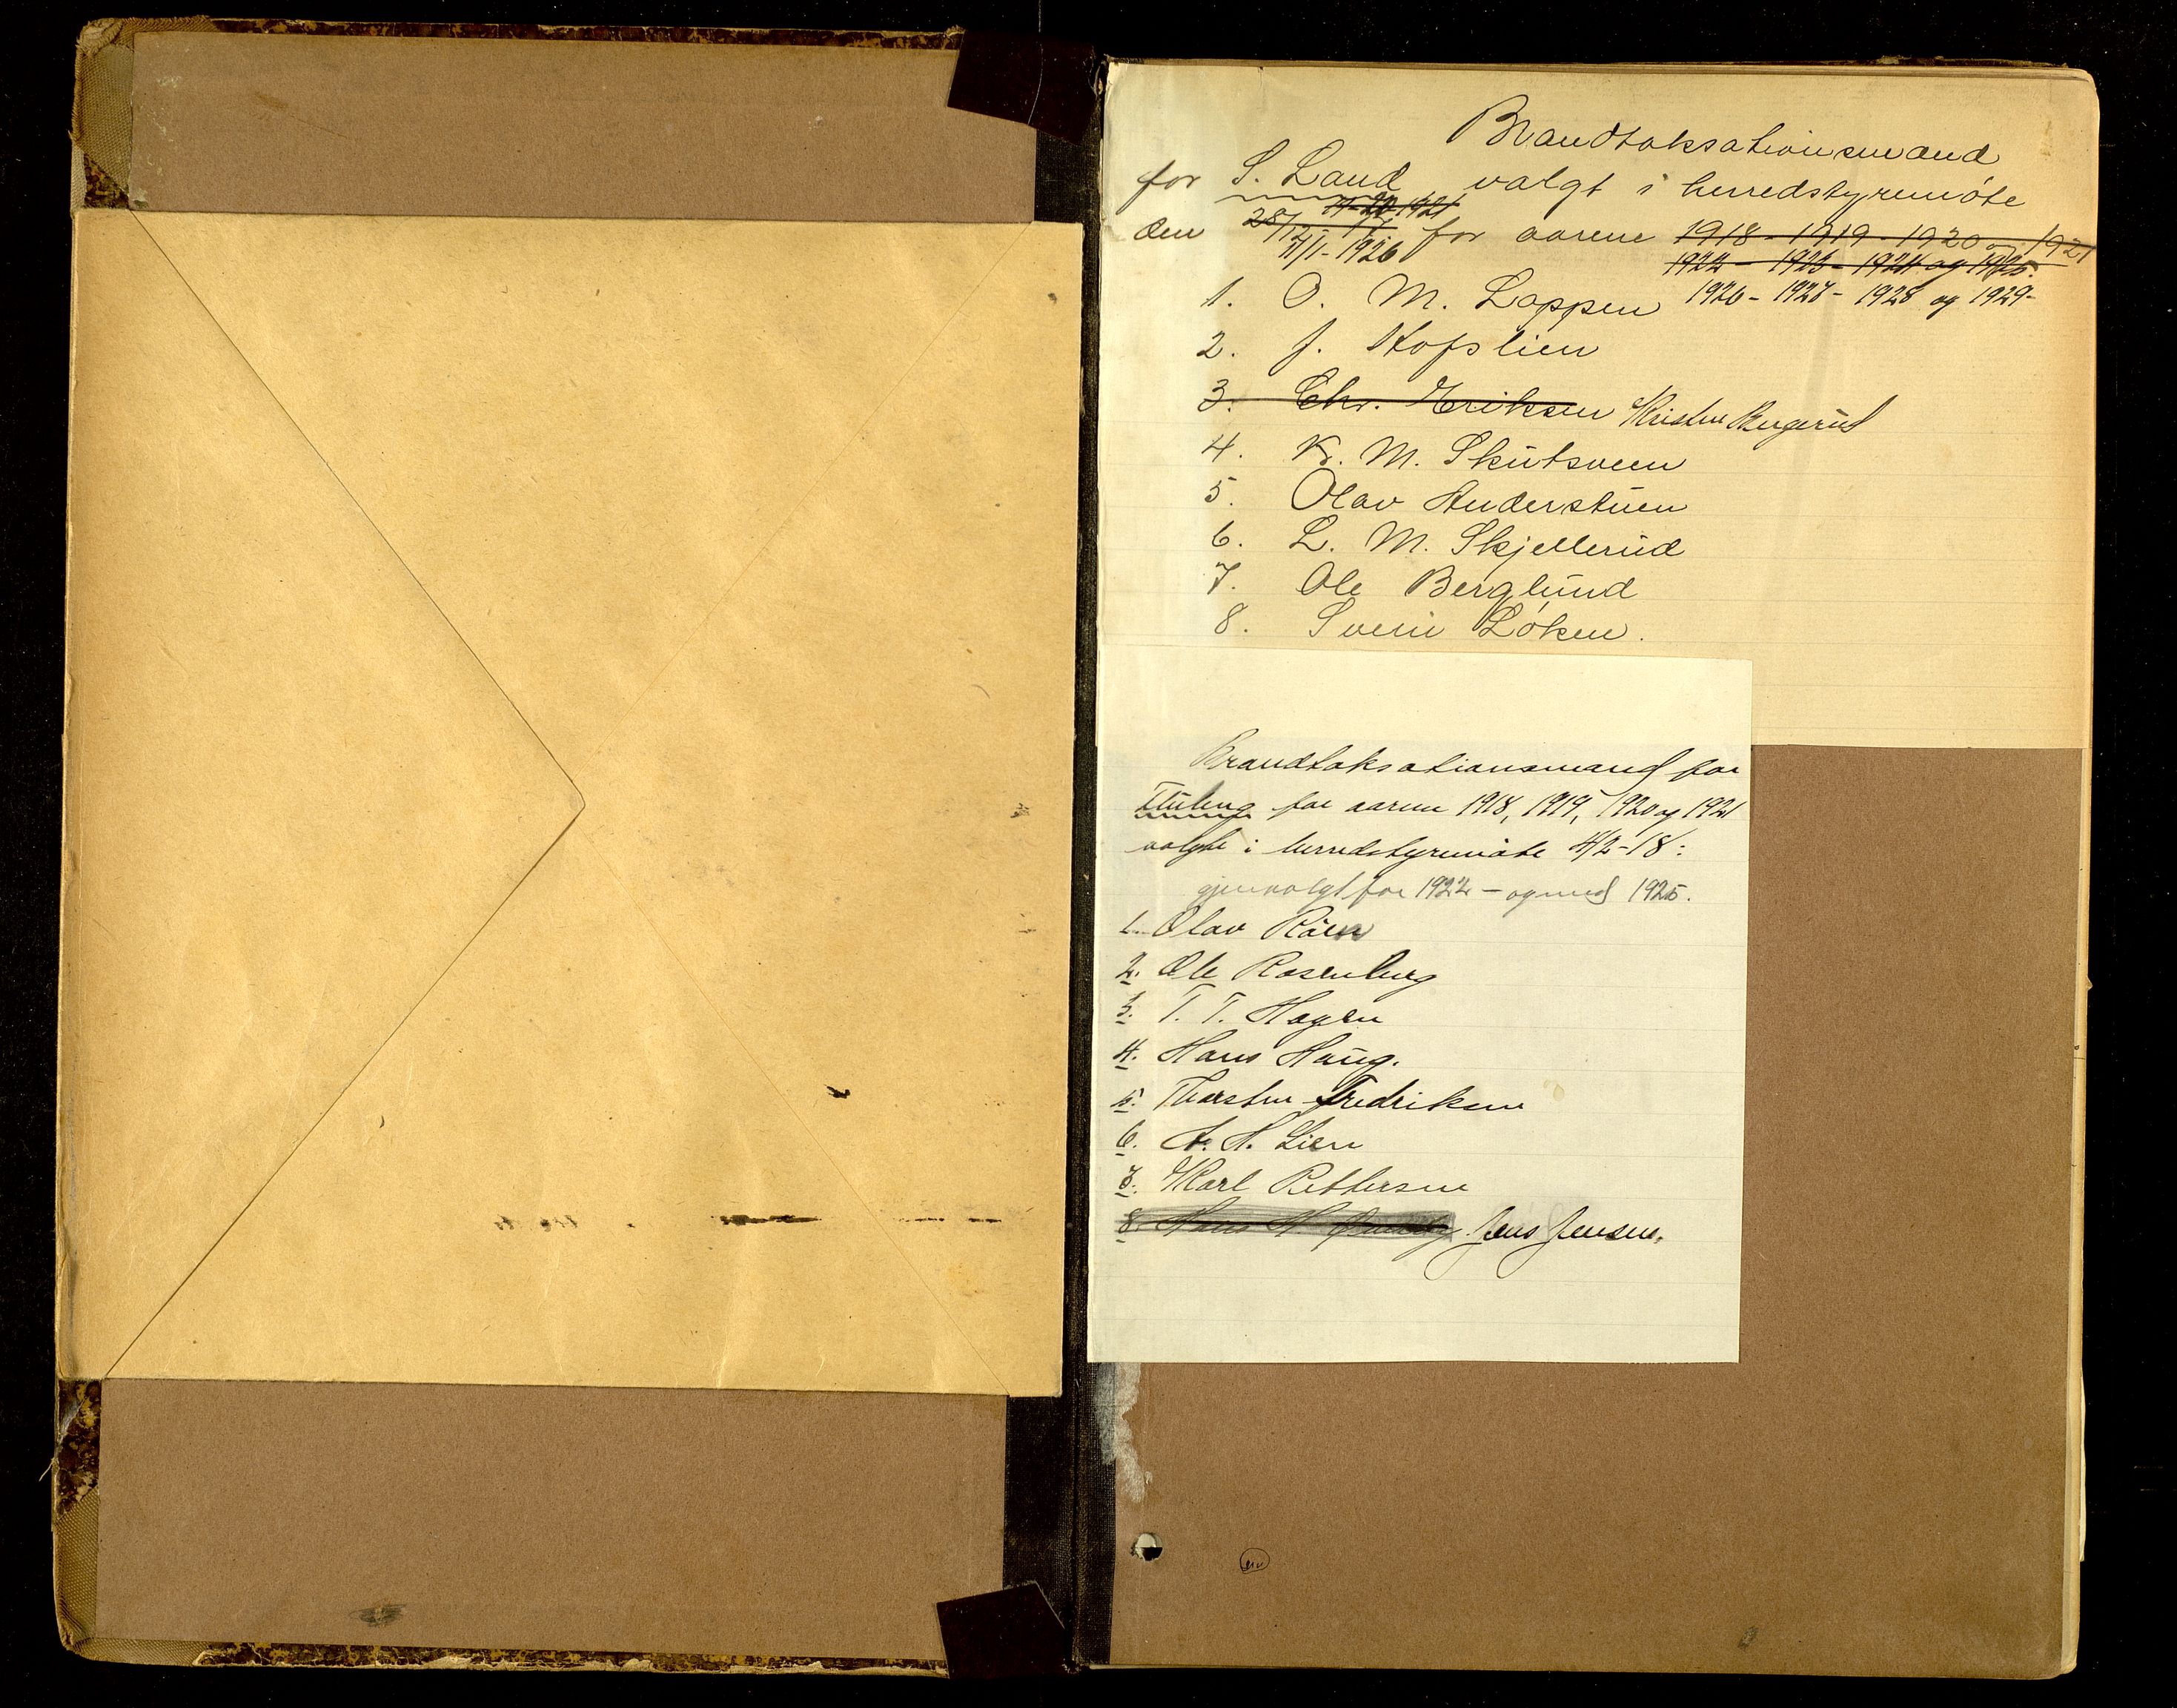 Brandtaksationsmænd
for S. Land valgt i herredstyremöte
11-20 1921
den 28/12-17 for aarene 1918-1919-1920 og 1921
11/1-1926 1922-1923-1924 og 1925.
1. O. M. Loppen 1926-1927-1928 og 1929-
2. J. Hofslien
3. Chr. Eriksen Kristen Bergerud
4. K. M. Skutsveen
5. Olav Anderstuen
6. L. M. Skjellerud
7. Ole Berglund
8. Sverin Löken.
Brandtaksationsmænd for
Fluberg for aarene 1918, 1919, 1920 og 1921
valgte i herredstyremöte 4/2-18:
gjenvalgt for 1922 - og med 1925.
1. Olav Röen
2. Ole Rosenberg
3. T. T. Hagen
4. Hans Haug.
5. Thorsten Fredriksen
6. A. H. Lien
7. Karl Pettersen
8. Hans H. Jens Jensen.